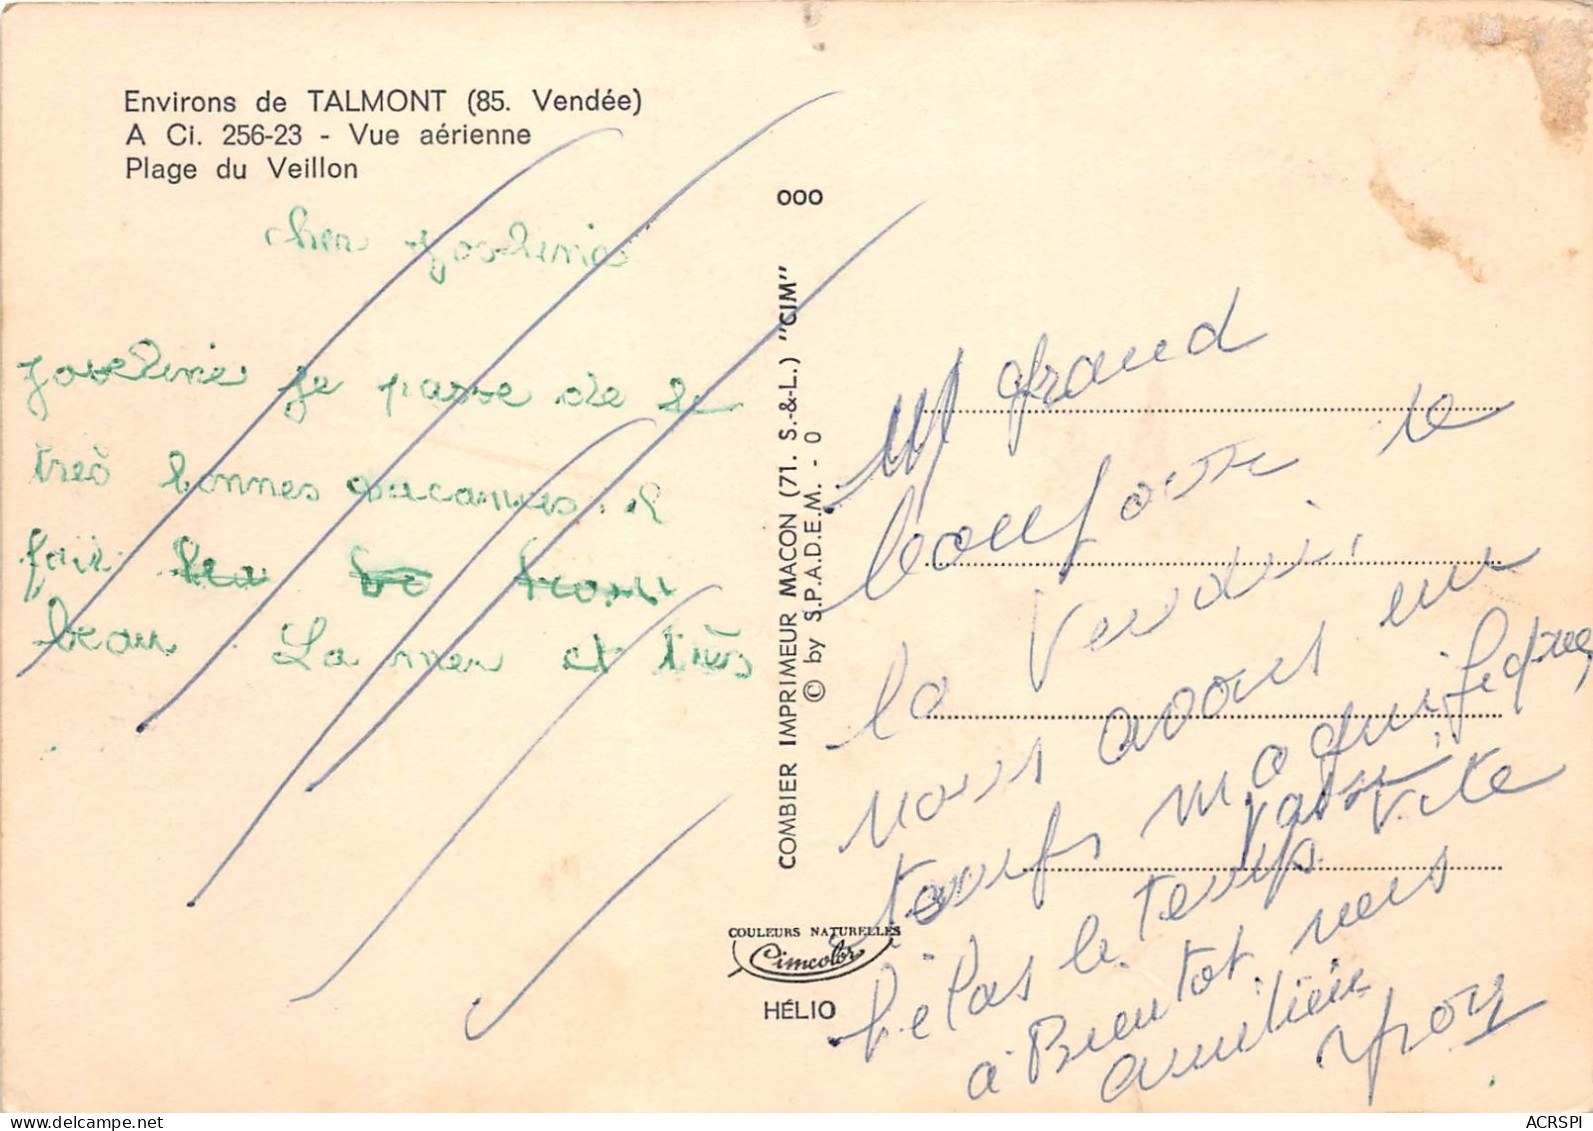 Environs de TALMONT (85. Vendée)
A Ci. 256-23 - Vue aérienne
Plage du Veillon
cher Joseline
Joseline je passe de
tres bonnes vacances. il
fait
beau La mer et très
COMBIER IMPRIMEUR MACON (71. S.-&-L.) "CIM"
© by S.P.A.D.E.M. - 0
000
COULEURS NATURELLES
Cimcolor
HÉLIO
Un grand
bonjour de
la Vendée,
nous avons un
temps magnifique,
hélas le temps passe vite
à Bientot. nos
amitiées
ACRSPI